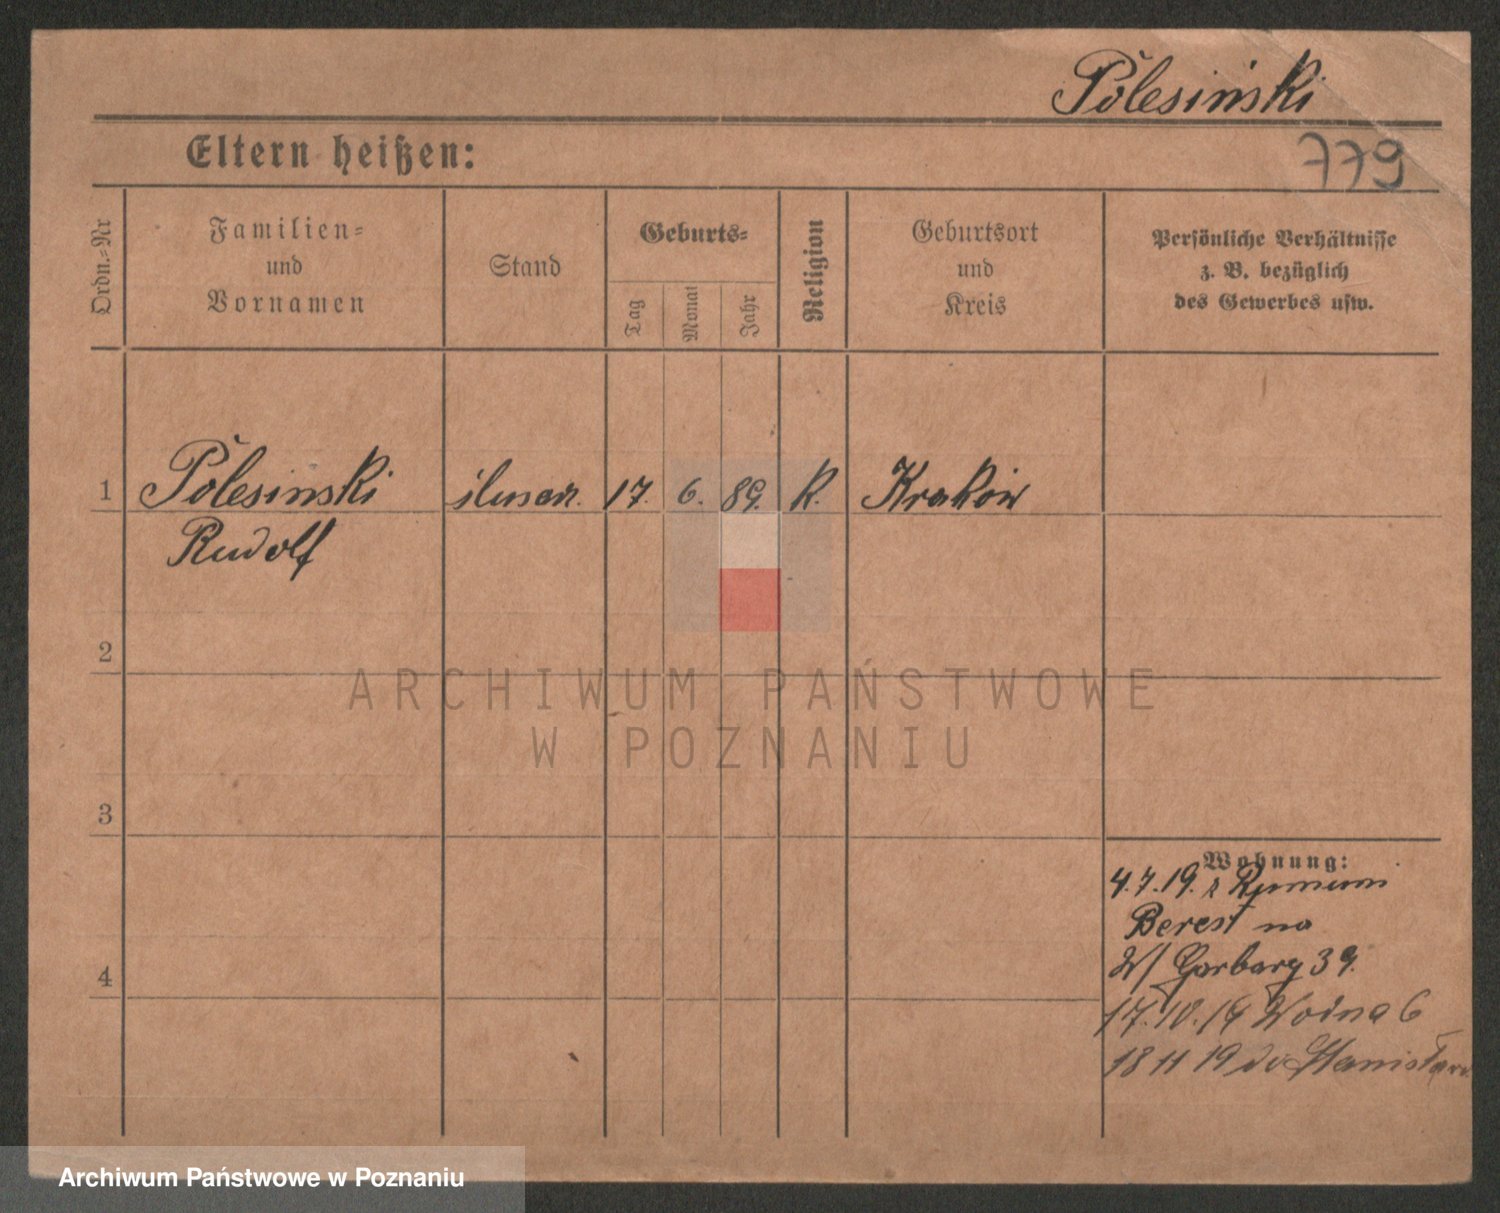 Polesiński
779
Eltern heißen:
Ordn.-Nr
Familien-
und
Vornamen
Stand
Geburts-
Tag
Monat
Jahr
Religion
Geburtsort
und
Kreis
Persönliche Verhältnisse
z. B. bezüglich
des Gewerbes usw.
1
Polesinski
ślusarz.
17.
6.
89.
K.
Kraków
Rudolf
2
3
4
Wohnung:
4.7.19. z
Berest na
W/ Garbary 39.
17.10.19 Wodna 6
18 11 19 do Stanisław
ARCHIWUM PAŃSTWOWE
W POZNANIU
Archiwum Państwowe w Poznaniu